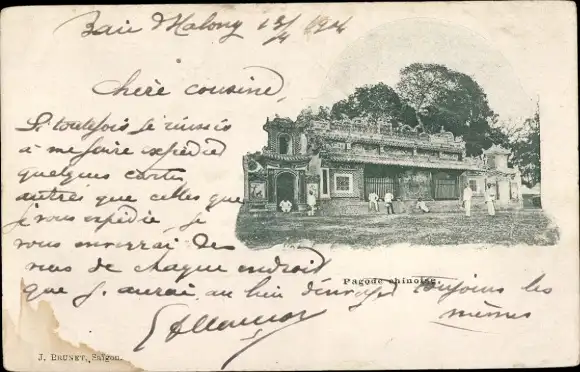 Baie d'Along 13/4 1904
chère cousine,
Si toutefois je réussis
à me faire expédier
quelques cartes
autres que celles que
je vous expédie, je
vous enverrai des
vues de chaque endroit
que j'aurai, au lieu d'envoyer toujours les
mêmes
Pagode chinoise.
J. BRUNET, Saïgon.